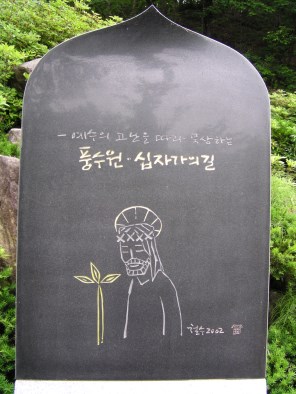 - 예수의 고난을 따라 묵상하는
풍수원·십자가의 길
철수 2002